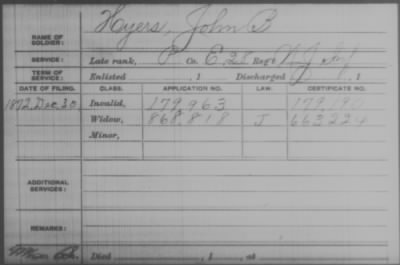 NAME OF SOLDIER: Hyers, John B
SERVICE: Late rank, P Co. E, 28 Reg't N J Inf
TERM OF SERVICE: Enlisted , 1 Discharged , 1
DATE OF FILING. CLASS. APPLICATION NO. LAW. CERTIFICATE NO.
1872, Dec. 30 Invalid, 179,963 179,190
Widow, 868,818 J 663224
Minor,
ADDITIONAL SERVICES:
REMARKS:
Died , 1 , at